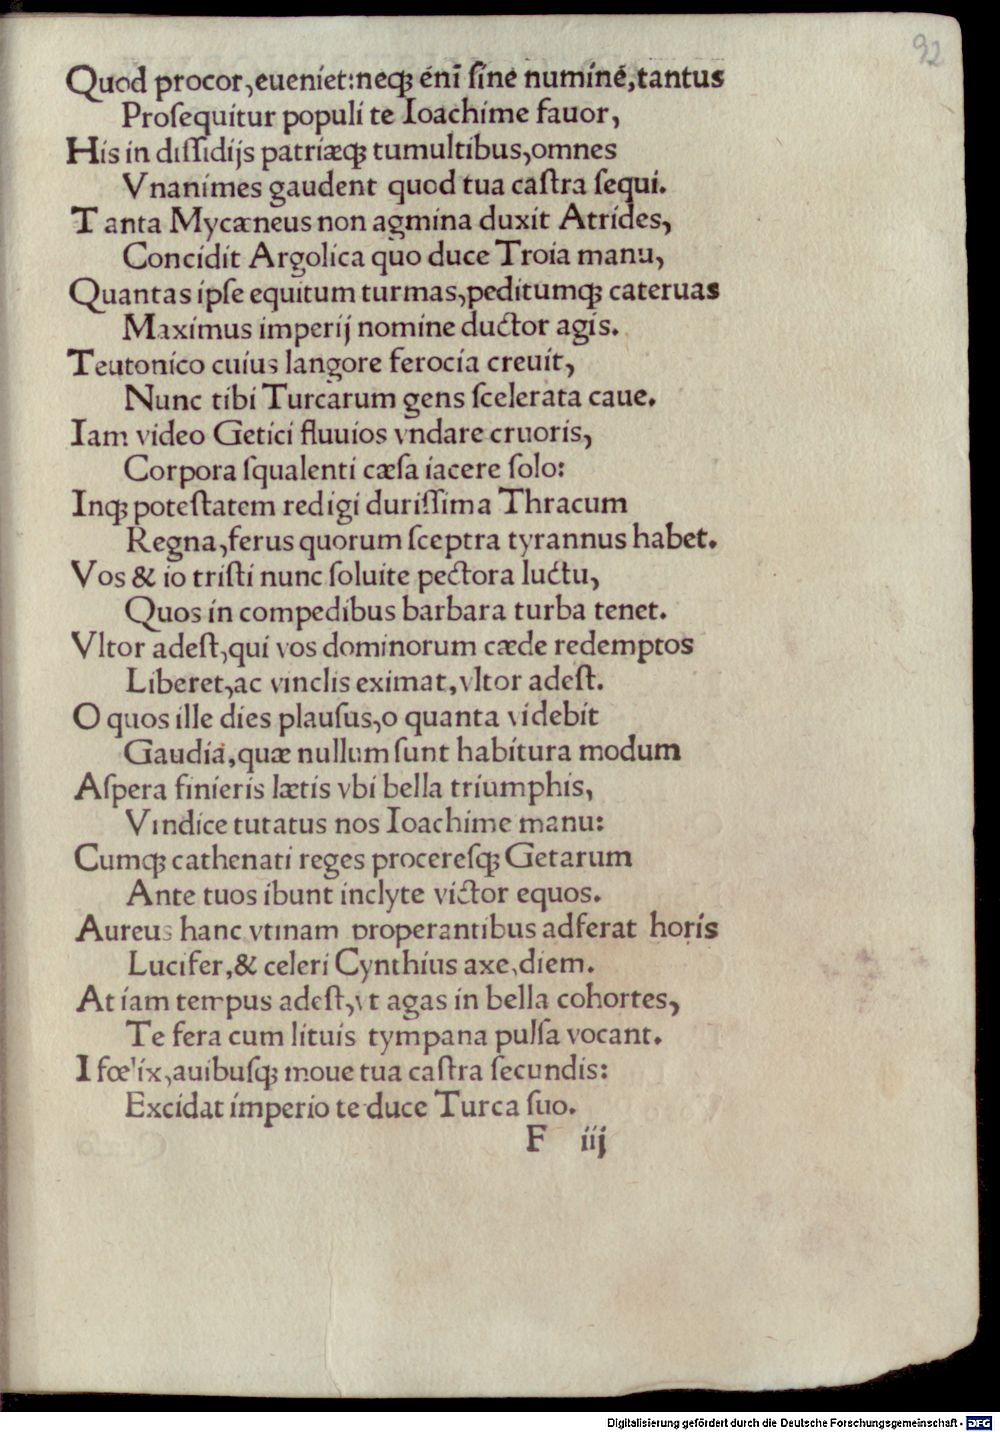 92
Quod procor, eueniet: neqꝫ enī ſine numine, tantus
Proſequitur populi te Ioachime fauor,
His in diſſidijs patriæqꝫ tumultibus, omnes
Vnanimes gaudent quod tua caſtra ſequi.
Tanta Mycæneus non agmina duxit Atrides,
Concidit Argolica quo duce Troia manu,
Quantas ipſe equitum turmas, peditumqꝫ cateruas
Maximus imperij nomine ductor agis.
Teutonico cuius langore ferocia creuit,
Nunc tibi Turcarum gens ſcelerata caue.
Iam video Getici fluuios vndare cruoris,
Corpora ſqualenti cæſa iacere ſolo:
Inqꝫ poteſtatem redigi duriſſima Thracum
Regna, ferus quorum ſceptra tyrannus habet.
Vos & io triſti nunc ſoluite pectora luctu,
Quos in compedibus barbara turba tenet.
Vltor adeſt, qui vos dominorum cæde redemptos
Liberet, ac vinclis eximat, vltor adeſt.
O quos ille dies plauſus, o quanta videbit
Gaudia, quæ nullum ſunt habitura modum
Aſpera finieris lætis vbi bella triumphis,
Vindice tutatus nos Ioachime manu:
Cumqꝫ cathenati reges procereſqꝫ Getarum
Ante tuos ibunt inclyte victor equos.
Aureus hanc vtinam properantibus adferat horis
Lucifer, & celeri Cynthius axe, diem.
At iam tempus adeſt, vt agas in bella cohortes,
Te fera cum lituis tympana pulſa vocant.
I fœlix, auibuſqꝫ moue tua caſtra ſecundis:
Excidat imperio te duce Turca ſuo.
F iij
Digitalisierung gefördert durch die Deutsche Forschungsgemeinschaft - DFG